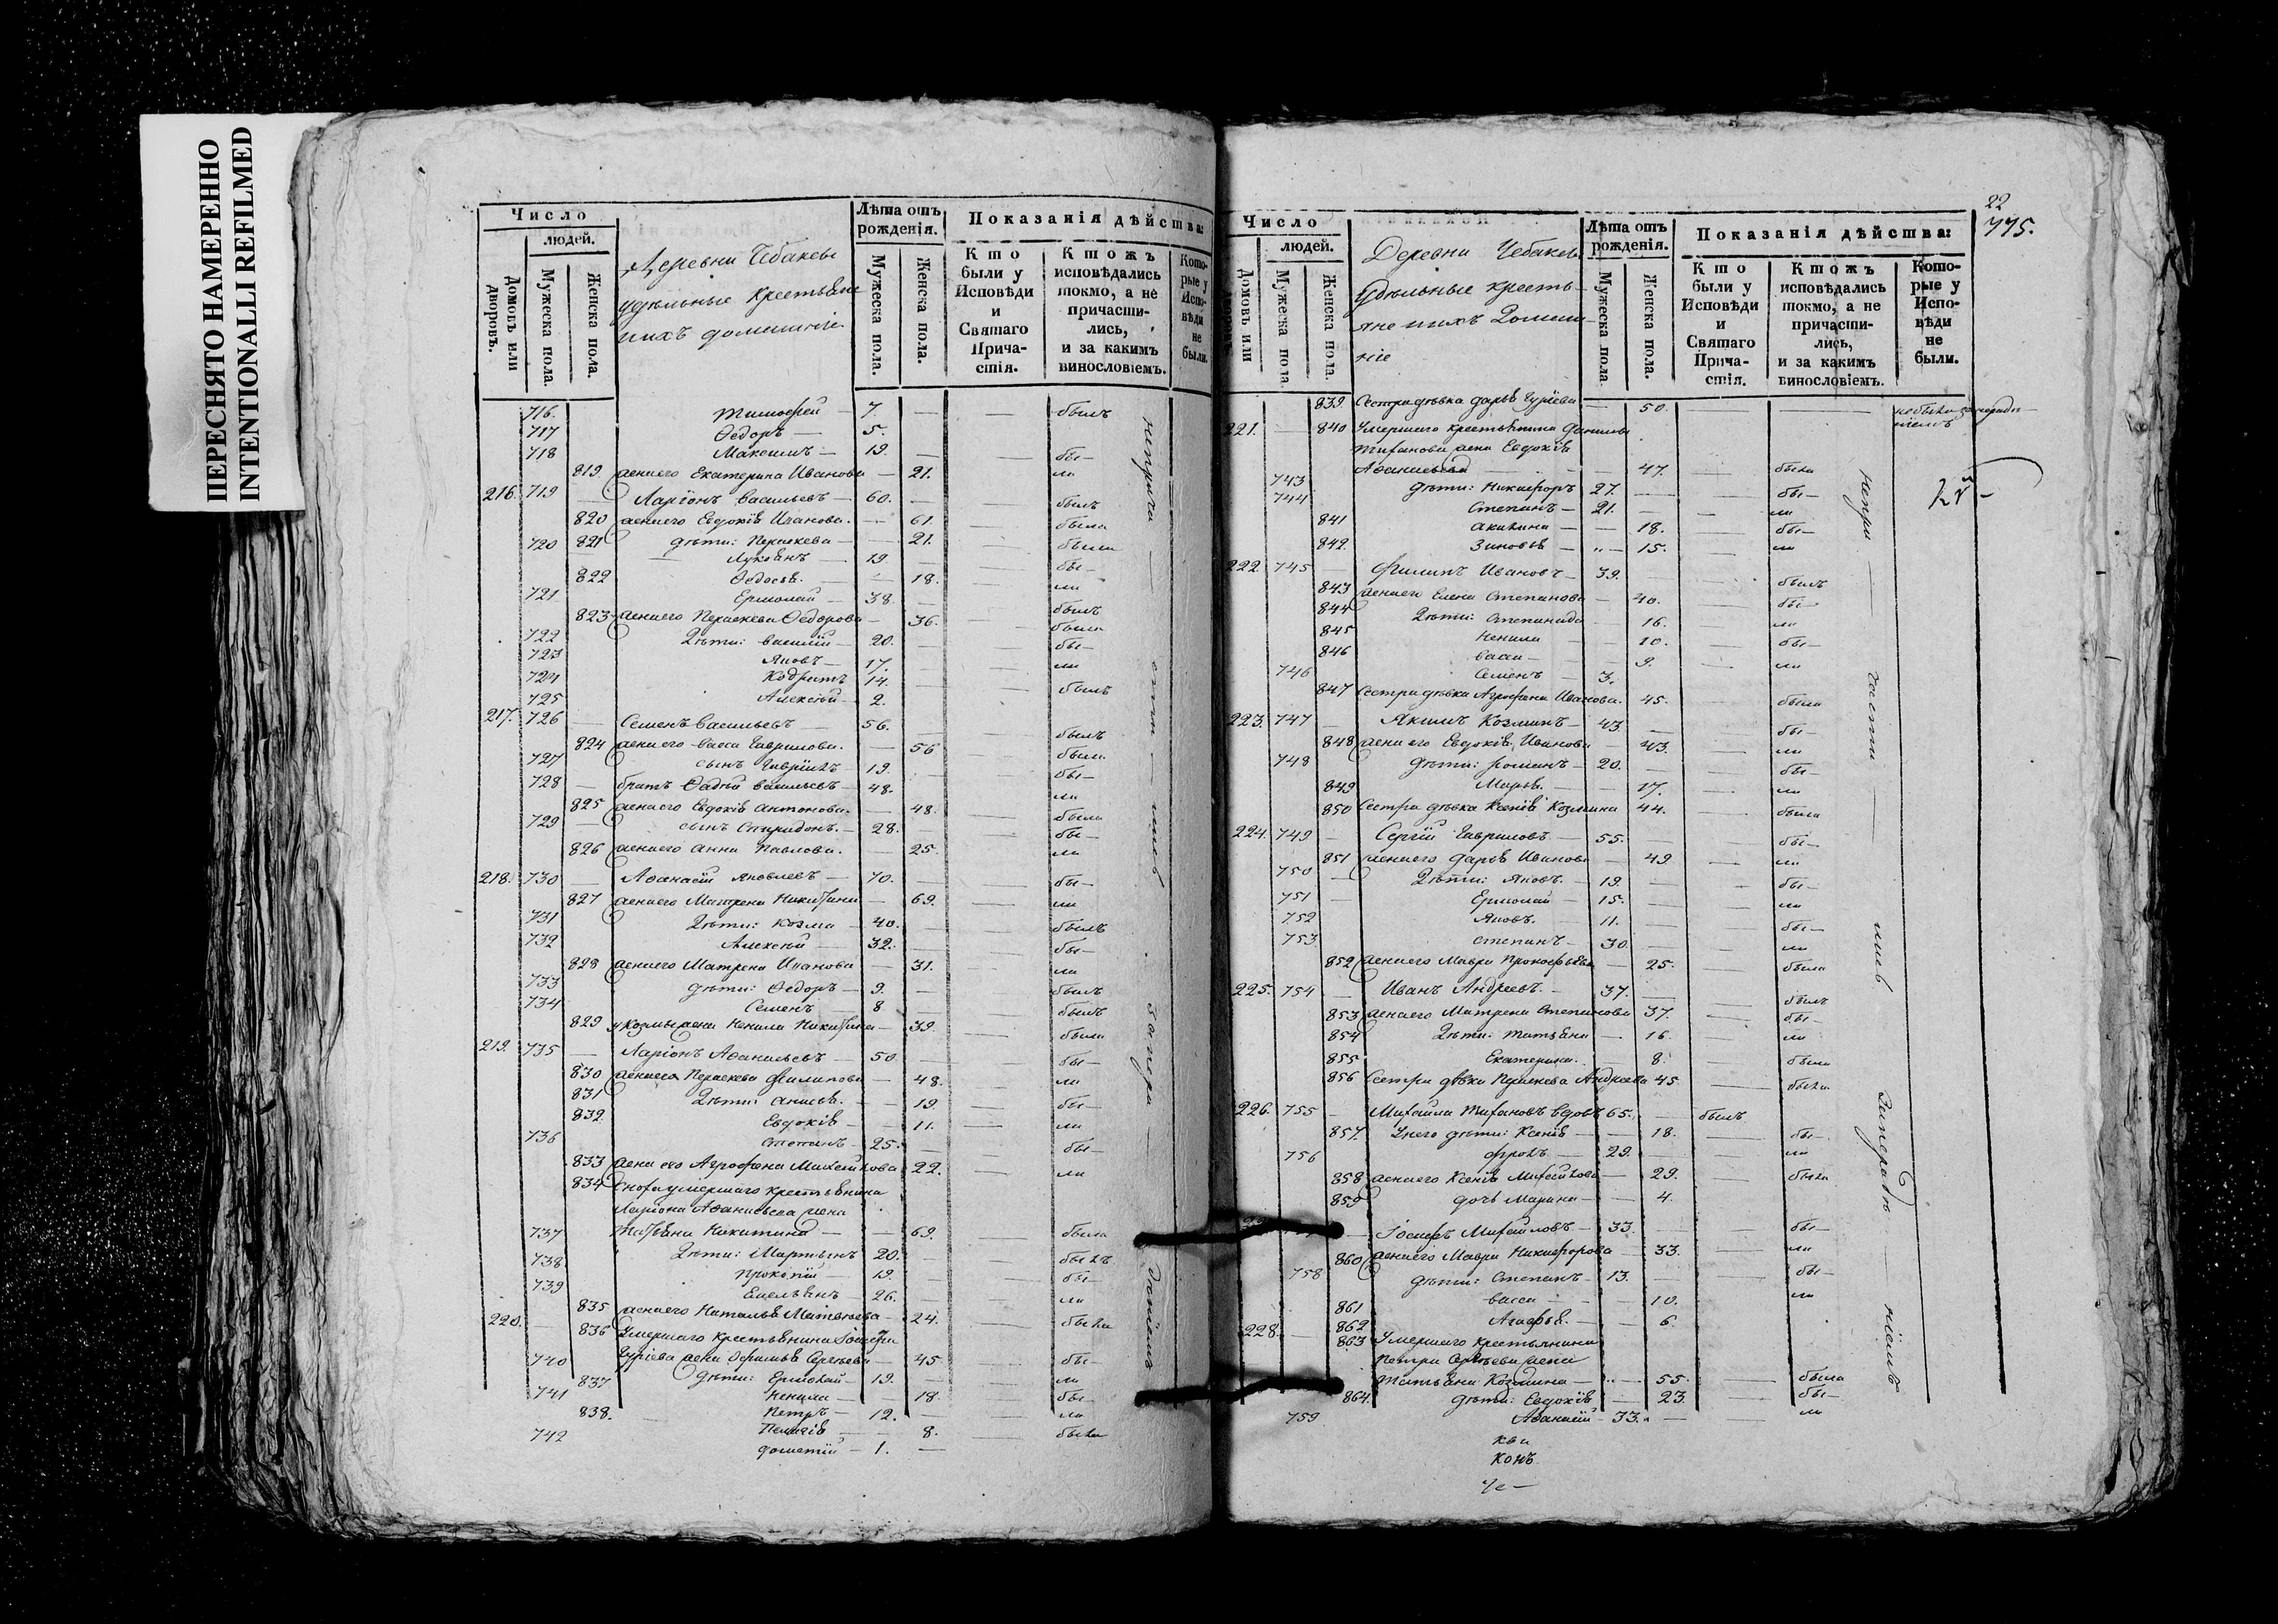 ПЕРЕСНЯТО НАМЕРЕННО
INTENTIONALLI REFILMED
Число
людей.
Домовъ или дворовъ.
Мужеска пола.
Женска пола.
Деревни Чебаковы
удѣльные крестьяне
и ихъ домашніе
Лѣта отъ рожденія.
Мужеска пола.
Женска пола.
Показанія дѣйства:
Кто были у Исповѣди и Святаго Причастія.
Ктожъ исповѣдались токмо, а не причастились, и за какимъ винословіемъ.
Которые у Исповѣди не были.
716. Тимофей — 7. — — былъ
717 Ѳедоръ — 5.
718 Максимъ — 19. — бы—
819 жена его Екатерина Иванова — 21. ли
216. 719 — Ларіонъ Васильевъ — 60. — былъ
820 жена его Евдокія Иванова. — 61. была
821 дѣти: Параскева — 21. была
720 Лукьянъ — 19. бы—
822 Ѳедосья. — 18. ли
721 Ермолай — 38. былъ
823 жена его Параскева Ѳедорова — 36. была
722 Дѣти: Василій — 20. бы—
723 Яковъ — 17. ли
724 Кодратъ 14. былъ
725 Алексѣй — 2.
217. 726 — Семенъ Васильевъ — 56. былъ
824 жена его Васса Гаврилова. — 56 была
727 сынъ Гавріилъ — 19. бы—
728 — братъ Ѳадѣй Васильевъ — 48. ли
825 жена его Евдокія Антонова. — 48. была
729 — сынъ Спиридонъ. — 28. бы—
826 жена его Анна Павлова. — 25. ли
218. 730 — Аѳанасій Яковлевъ — 70. — бы—
827 жена его Матрена Никитина — 69. ли
731 Дѣти: Козма — 40. былъ
732 Алексѣй — 32. бы—
828 жена его Матрена Иванова — 31. ли
733 дѣти: Ѳедоръ — 9. былъ
734 Семенъ 8 былъ
829 у Козмы жена Ненила Никитина — 39. была
219. 735 — Ларіонъ Аѳанасьевъ — 50. бы—
830 жена его Параскева Филипова — 48. ли
831 Дѣти: Анисья. — 19. бы—
832. Евдокія — 11. ли
736 Степанъ — 25. бы—
833 жена его Агрофена Михайлова 22. ли
834 Сноха умершаго крестьянина
Ларіона Аѳанасьева жена
737 Татьяна Никитина — 69. была
738 Дѣти: Мартынъ 20. былъ
Прокопій — 19. бы—
739 Емельянъ — 26. ли
835 жена его Наталья Матвѣева — 24. была
220. — 836 Умершаго крестьянина Іосифа
740 Гуріева жена Ефимья Сергѣева — 45 бы—
837 дѣти: Ермолай — 19. ли
741 Ненила — 18. бы—
838. Петръ — 12. ли
742 Пелагія — 8. была
Дометій — 1. —
непріча — сти — лись
22
775.
Число
людей.
Домовъ или
Мужеска пола
Женска пола.
Деревни Чебаковы
Удѣльные кресть-
яне и ихъ Домаш-
ніе
Лѣта отъ рожденія.
Мужеска пола
Женска пола.
Показанія дѣйства:
Кто были у Исповѣди и Святаго Причастія.
Ктожъ исповѣдались токмо, а не причастились, и за какимъ винословіемъ.
Которые у Исповѣди не были.
839. Сестра дѣвка Дарья Гуріева — 50. — не была за неради-
ніемъ
221. — 840 Умершаго крестьянина Данилы
Тиханова жена Евдокія
Аѳанасьева — 47. была
743 дѣти: Никифоръ 27. бы—
744 Степанъ — 21. ли
841 Акилина — 18. бы—
842. Зиновья — 15. ли
222. 745 — Филипъ Ивановъ — 39. былъ
843 жена его Елена Степанова — 40. бы—
844 Дѣти: Степанида — 16. ли
845 Ненила — 10. бы—
846 Васса — 9. ли
746 Семенъ — 3.
847 Сестра дѣвка Агрофена Иванова. 45. была
223. 747 — Якимъ Козминъ — 43. бы—
848 жена его Евдокія Иванова — 43. ли
748 дѣти: Романъ — 20. бы—
849 Марья. — 17. ли
850 Сестра дѣвка Ксенія Козмина 44. была
224. 749 — Сергій Гавриловъ — 55. бы—
851 жена его Дарья Иванова — 49 ли
750 — Дѣти: Яковъ. — 19. бы—
751 — Ермолай — 15. ли
752 Яковъ. 11. бы—
753 Степанъ — 30. ли
852 жена его Мавра Прокофьева — 25. была
225. 754 — Иванъ Андреевъ. — 37. былъ
853 жена его Матрена Степанова 37. бы—
854 Дѣти: Татьяна — 16. ли
855 Екатерина. — 8. была
856 Сестра дѣвка Параскева Андреева 45. была
226. 755 — Михайла Тихановъ вдовъ 65. — былъ
857. У него дѣти: Ксенія — 18. бы—
756 Фролъ — 29. ли
858 жена его Ксенія Михайлова — 29. была
859 дочь Марина — 4.
Іосифъ Михайловъ — 33. бы—
860 жена его Мавра Никифорова — 33. ли
758 дѣти: Степанъ — 13. бы—
861 Васса — 10. ли
862 Агафья. — 6.
228. — 863 Умершаго крестьянина
Петра Сергѣева жена
Татьяна Козмина — 55. была
864. дѣти: Евдокія — 23. бы—
759 Аѳанасій — 33. ли
непри — части — лись